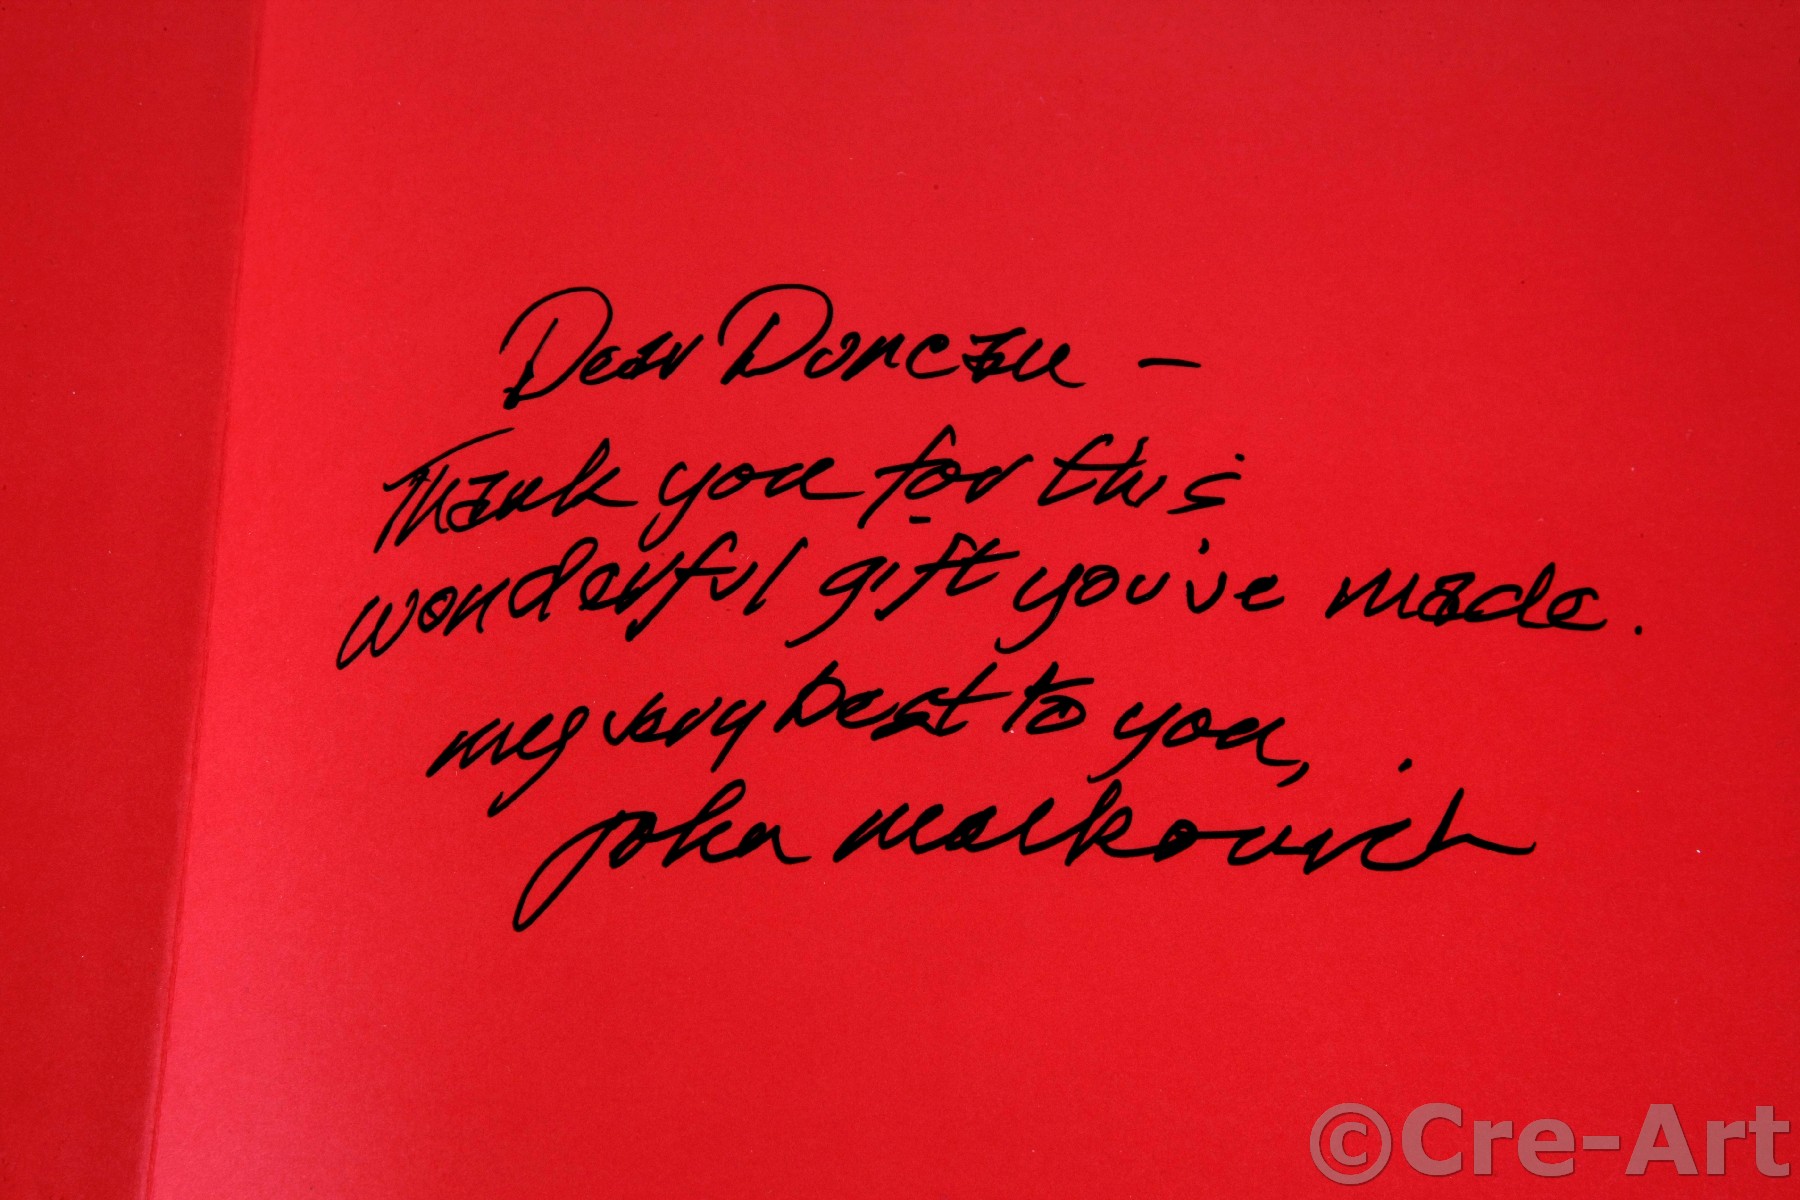 Dear Duncan —
Thank you for this
wonderful gift you've made.
my very best to you,
john malkovich
©Cre-Art